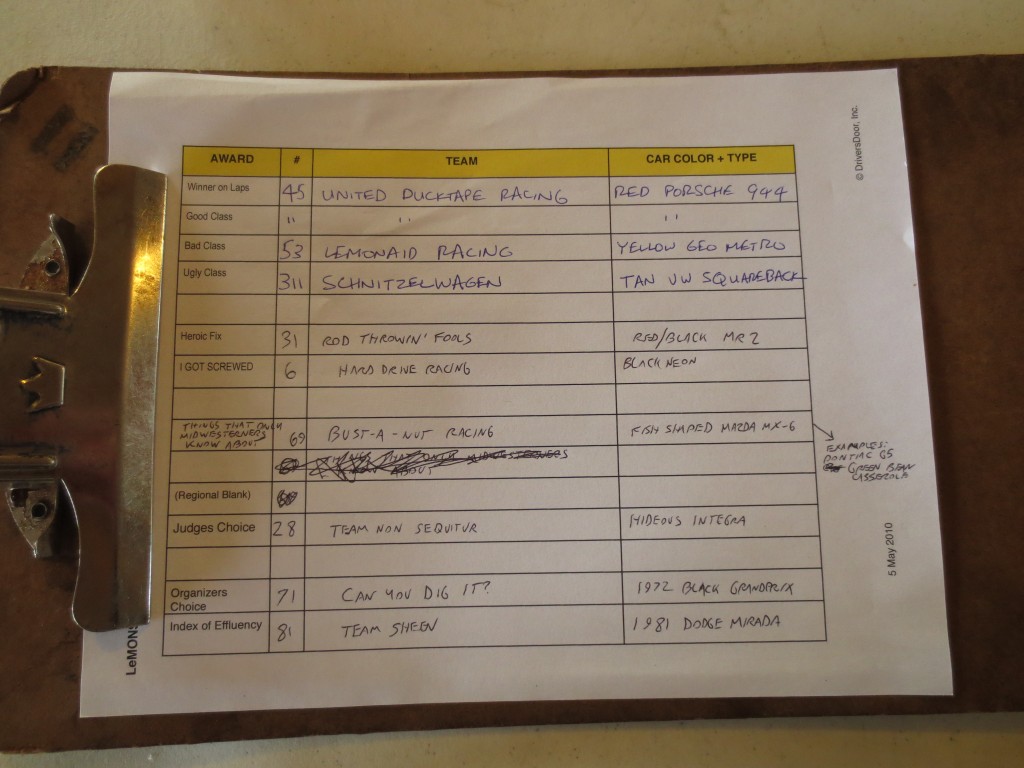 AWARD # TEAM CAR COLOR + TYPE
Winner on Laps 45 UNITED DUCKTAPE RACING RED PORSCHE 944
Good Class " " "
Bad Class 53 LEMONAID RACING YELLOW GEO METRO
Ugly Class 311 SCHNITZELWAGEN TAN VW SQUAREBACK
Heroic Fix 31 ROD THROWIN' FOOLS RED/BLACK MR2
I GOT SCREWED 6 HARD DRIVE RACING BLACK NEON
THINGS THAT ONLY
MIDWESTERNERS
KNOW ABOUT 69 BUST-A-NUT RACING FISH SHAPED MAZDA MX-6
EXAMPLES:
PONTIAC G5
GREEN BEAN
CASSEROLE
THINGS THAT ONLY MIDWESTERNERS
KNOW ABOUT
(Regional Blank)
Judges Choice 28 TEAM NON SEQUITUR HIDEOUS INTEGRA
Organizers
Choice 71 CAN YOU DIG IT? 1972 BLACK GRANDPRIX
Index of Effluency 81 TEAM SHEEN 1981 DODGE MIRADA
LeMONS
5 May 2010
© DriversDoor, Inc.